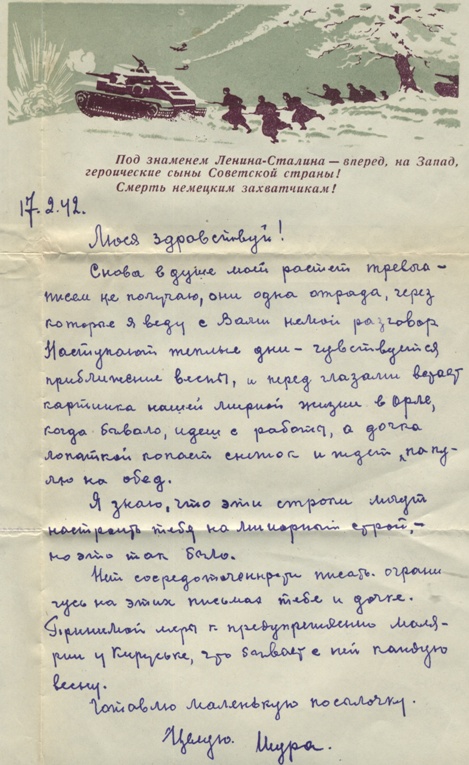 Под знаменем Ленина-Сталина — вперед, на Запад,
героические сыны Советской страны!
Смерть немецким захватчикам!
17.2.42.
Муся здравствуй!
Снова в душе моей растет тревога –
писем не получаю, они одна отрада, через
которые я веду с Вами немой разговор
Наступают теплые дни – чувствуется
приближение весны, и перед глазами встает
картинка нашей мирной жизни в Орле,
когда бывало, идеш с работы, а дочка
лопаткой копает снежок и ждет „папу-
лю на обед.
Я знаю, что эти строки могут
настроить тебя на минорный строй, –
но это так было.
Нет сосредоточенности писать. ограни
чусь на этих письмах тебе и дочке.
Принимай меры к предупреждению маля-
рии у Кируське, что бывает с ней каждую
весну.
Готовлю маленькую посылочку.
Целую. Шура.